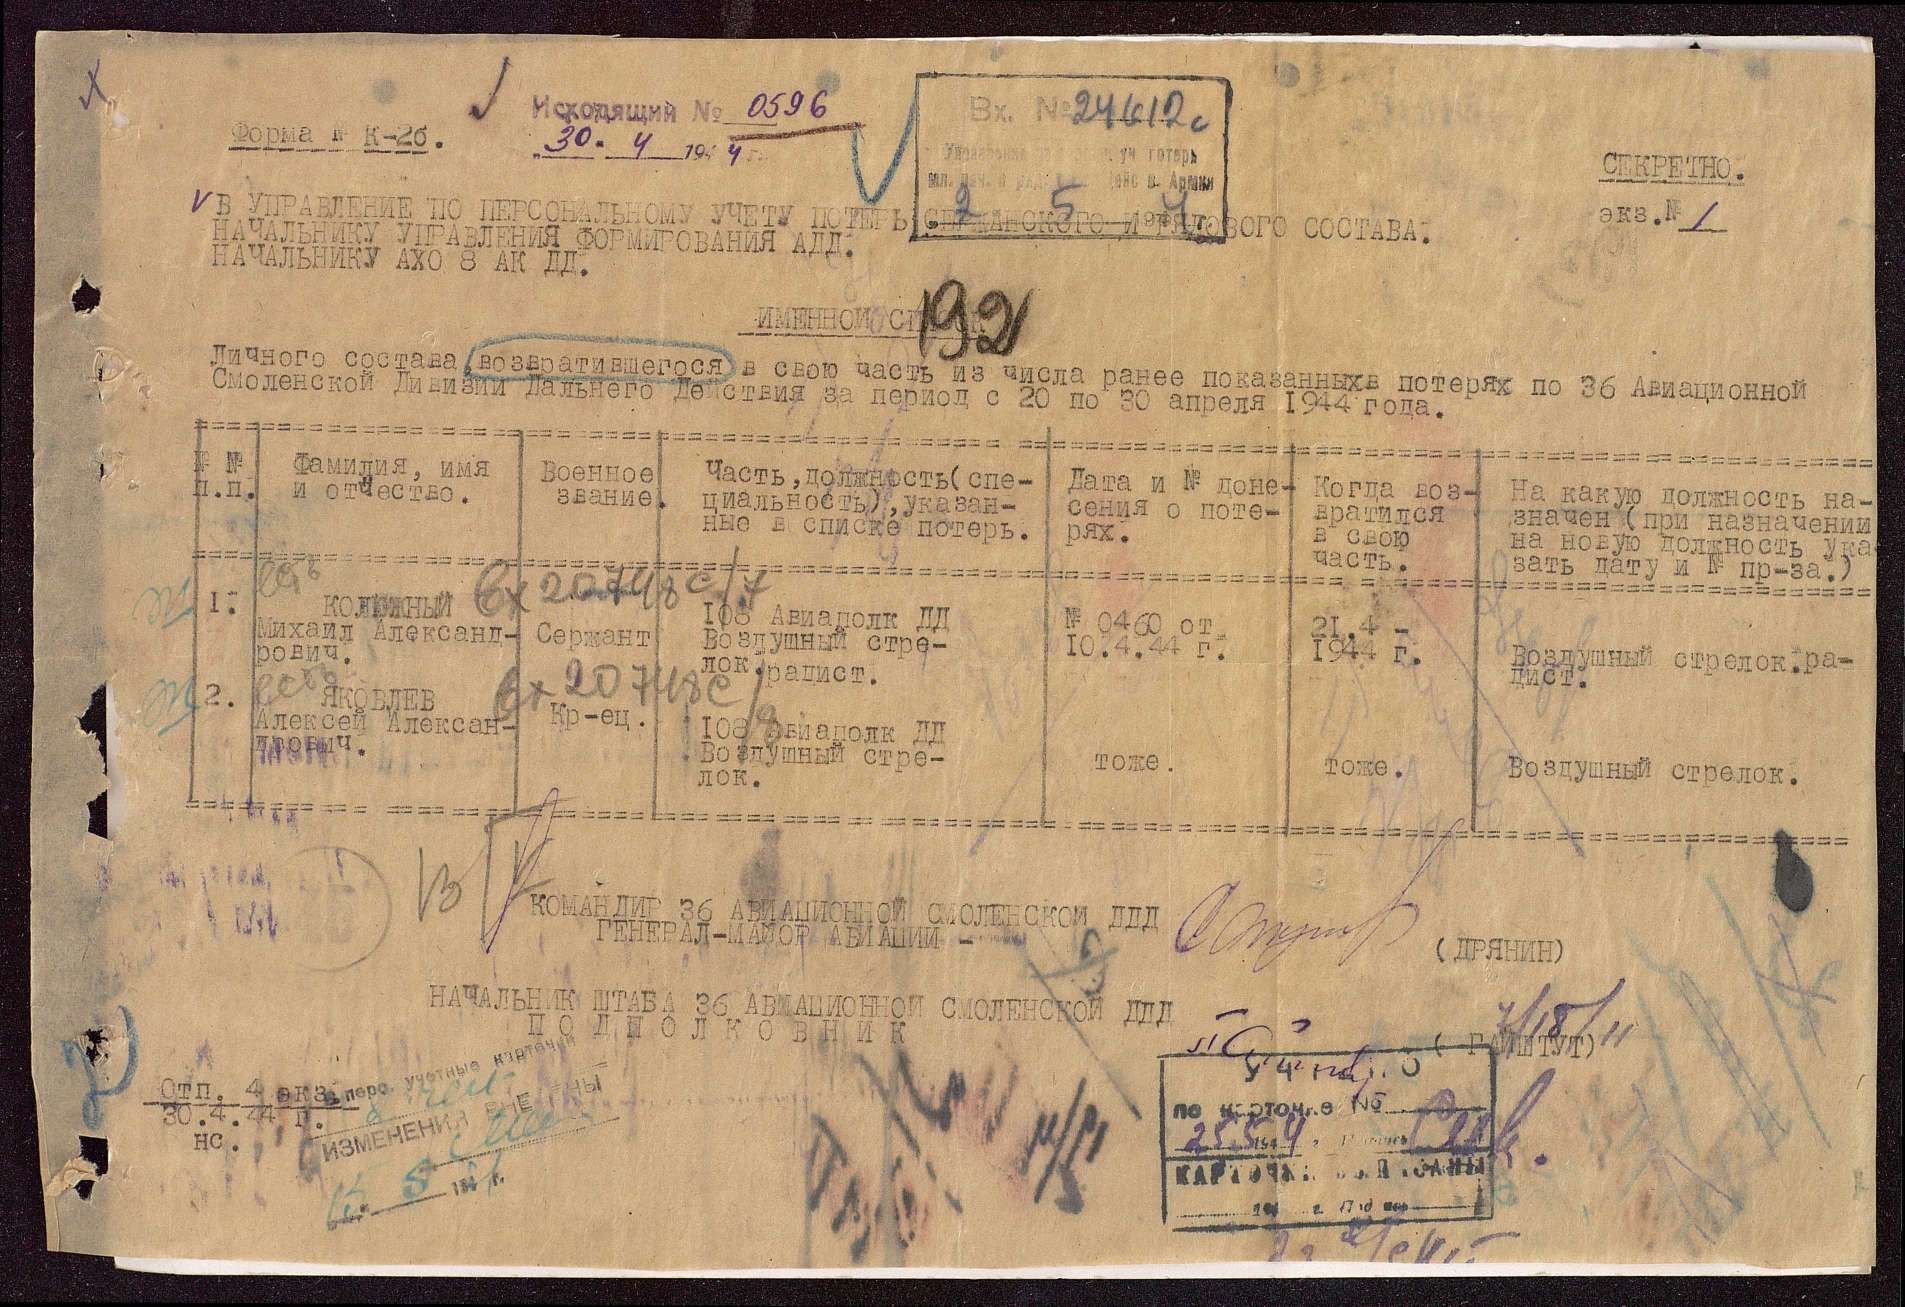 Исходящий № 0596
30. 4 1944 г.
Форма № К-2б.
Вх. № 24612с
уч потерь
2 5 4
СЕКРЕТНО.
экз.№ 1
В УПРАВЛЕНИЕ ПО ПЕРСОНАЛЬНОМУ УЧЕТУ ПОТЕРЬ СЕРЖАНСКОГО И РЯДОВОГО СОСТАВА.
НАЧАЛЬНИКУ УПРАВЛЕНИЯ ФОРМИРОВАНИЯ АДД.
НАЧАЛЬНИКУ АХО 8 АК ДД.
192
ИМЕННОЙ
Личного состава возвратившегося в свою часть из числа ранее показанныхв потерях по 36 Авиационной
Смоленской Дивизии Дальнего Действия за период с 20 по 30 апреля 1944 года.
№ №
п.п.
Фамилия, имя
и отчество.
Военное
звание.
Часть,должность(спе-
циальность),указан-
ные в списке потерь.
Дата и № доне-
сения о поте-
рях.
Когда воз-
вратился
в свою
часть.
На какую должность на-
значен(при назначении
на новую должность ука-
зать дату и № пр-за.)
Вх 20748с/7
1.
Михаил Александ-
рович.
Сержант
108 Авиаполк ДД
Воздушный стре-
лок.радист.
№ 0460 от
10.4.44 г.
21.4 -
1944 г.
Воздушный стрелок.ра-
дист.
Вх 20748с/8
2.
ЯКОВЛЕВ
Алексей Алексан-
дрович.
Кр-ец.
108 Авиаполк ДД
Воздушный стре-
лок.
тоже.
тоже.
Воздушный стрелок.
КОМАНДИР 36 АВИАЦИОННОЙ СМОЛЕНСКОЙ ДДД
ГЕНЕРАЛ-МАЙОР АВИАЦИИ -
(ДРЯНИН)
НАЧАЛЬНИК ШТАБА 36 АВИАЦИОННОЙ СМОЛЕНСКОЙ ДДД
ПОДПОЛКОВНИК
Отп. 4 экз.
30.4.44 г.
нс.
перс. учетные карточки
ИЗМЕНЕНИЯ ВНЕСЕНЫ
по карточке №